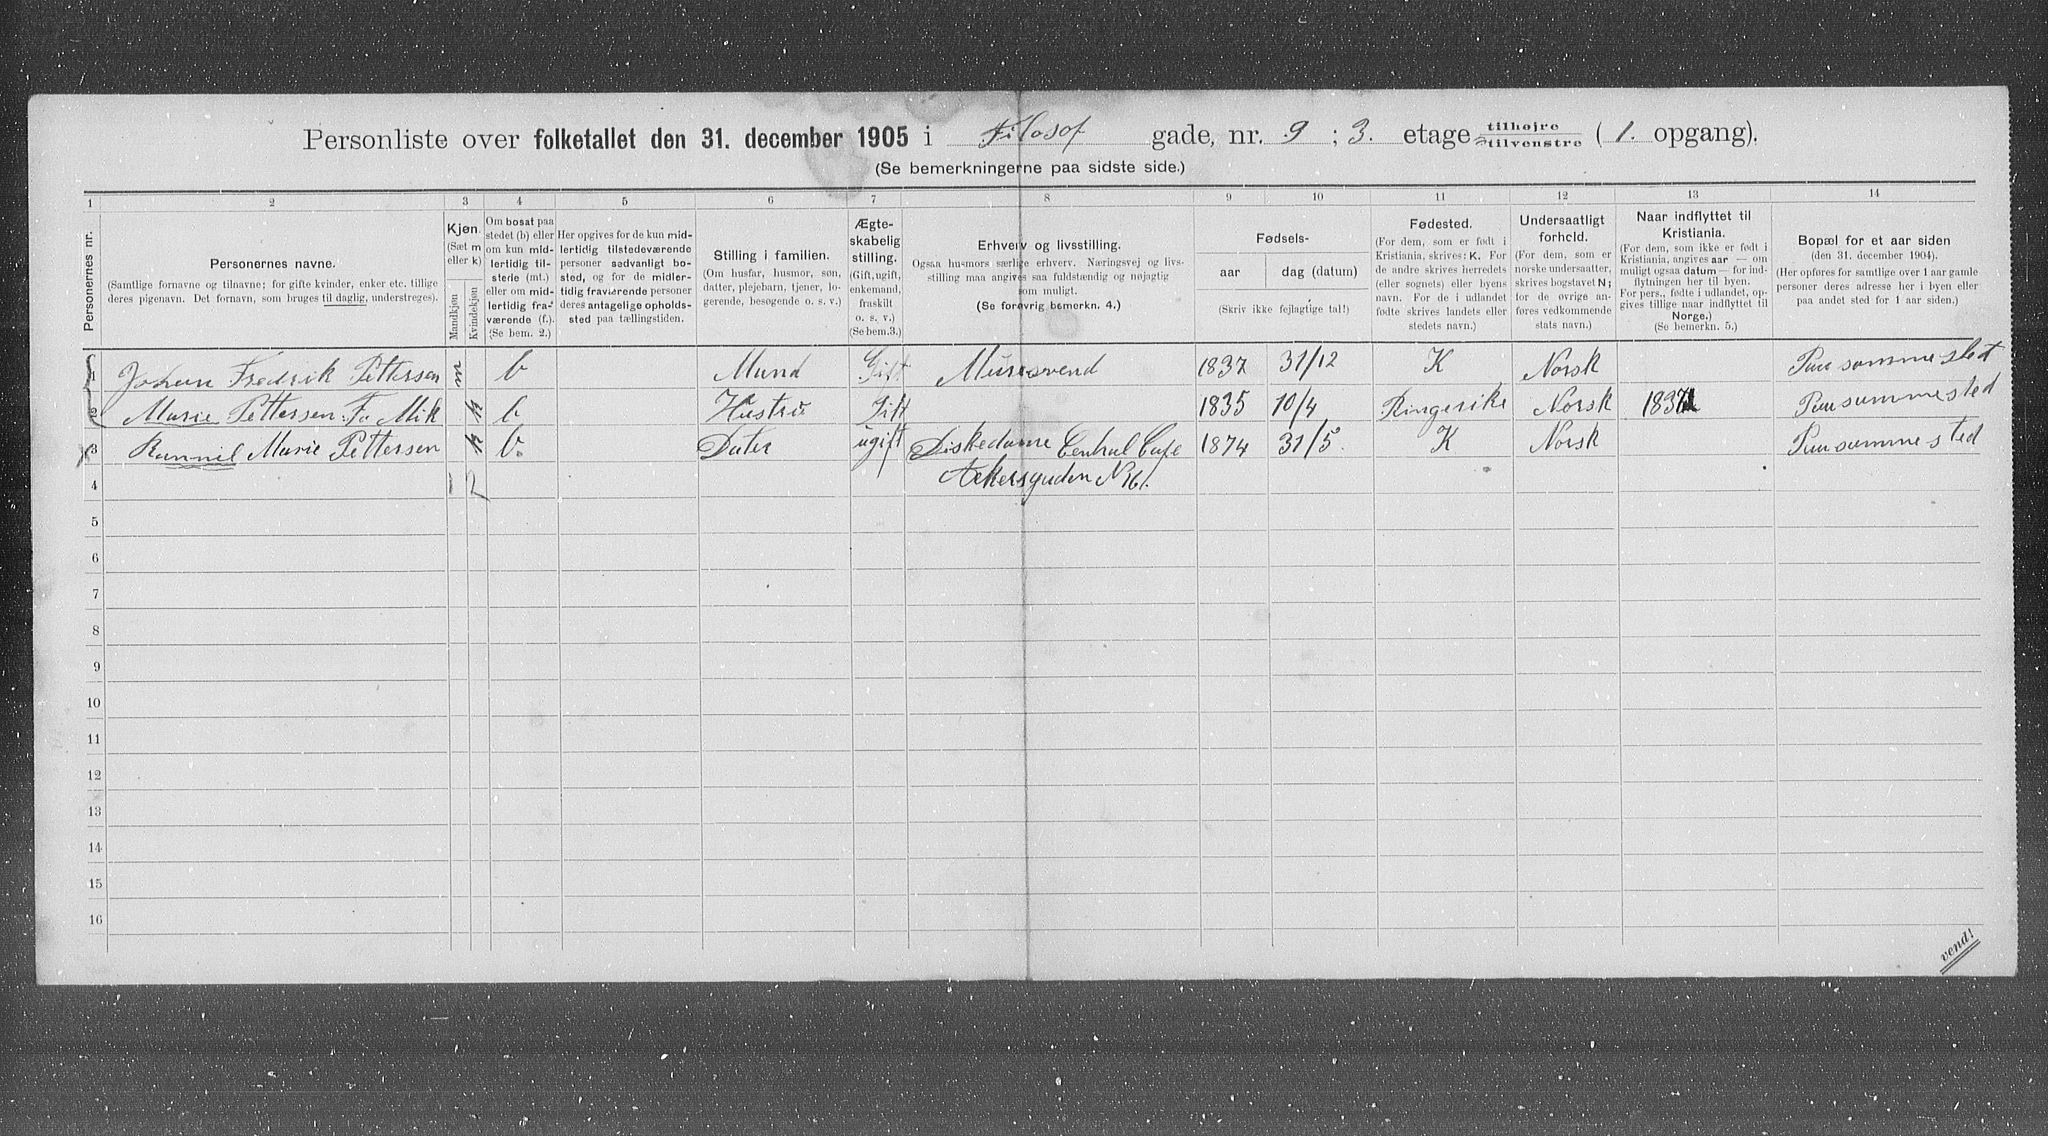 Personliste over folketallet den 31. december 1905 i Filosof gade, nr. 9 ; 3. etage tilhøjre tilvenstre ( 1. opgang).
(Se bemerkningerne paa sidste side.)
1 2 3 4 5 6 7 8 9 10 11 12 13 14
Personernes nr.
Personernes navne.
(Samtlige fornavne og tilnavne; for gifte kvinder, enker etc. tillige
deres pigenavn. Det fornavn, som bruges til daglig, understreges).
Kjøn.
(Sæt m
eller k)
Mandkjøn
Kvindekjøn
Om bosat paa
stedet (b) eller
om kun mid-
lertidig til-
stede (mt.)
eller om mid-
lertidig fra-
værende (f.).
(Se bem. 2.)
Her opgives for de kun mid-
lertidig tilstedeværende
personer sædvanligt bo-
sted, og for de midler-
tidig fraværende personer
deres antagelige opholds-
sted paa tællingstiden.
Stilling i familien.
(Om husfar, husmor, søn,
datter, plejebarn, tjener, lo-
gerende, besøgende o. s. v.)
Ægte-
skabelig
stilling.
(Gift, ugift,
enkemand,
fraskilt
o. s. v.)
(Se bem.3.)
Erhverv og livsstilling.
Ogsaa husmors særlige erhverv. Næringsvej og livs-
stilling maa angives saa fuldstændig og nøjagtig
som muligt.
(Se forøvrig bemerkn. 4.)
Fødsels-
aar dag (datum)
(Skriv ikke fejlagtige tal!)
Fødested.
(For dem, som er født i
Kristiania, skrives: K. For
de andre skrives herredets
(eller sognets) eller byens
navn. For de i udlandet
fødte skrives landets eller
stedets navn.)
Undersaatligt
forhold.
(For dem, som er
norske undersaatter,
skrives bogstavet N;
for de øvrige an-
føres vedkommende
stats navn.)
Naar indflyttet til
Kristiania.
(For dem, som ikke er født i
Kristiania, angives aar — om
muligt ogsaa datum — for ind-
flytningen her til byen.
For pers., fødte i udlandet, op-
gives tillige naar indflyttet til
Norge.)
(Se bemerkn. 5.)
Bopæl for et aar siden
(den 31. december 1904).
(Her opføres for samtlige over 1 aar gamle
personer deres adresse her i byen eller
paa andet sted for 1 aar siden.)
1 Johan Fredrik Pettersen m b Mand Gift Mursvend 1837 31/12 K Norsk Paa samme sted
2 Marie Pettersen. Fø Mik k b Hustru Gift 1835 10/4 Ringerike Norsk Paa samme sted
3 Marie Pettersen k b. Dater ugift Diskedame Central Cafe 1874 31/5. K Norsk Paa samme sted
4 1 2 Akersgaden N 16.
5
6
7
8
9
10
11
12
13
14
15
16
vend!